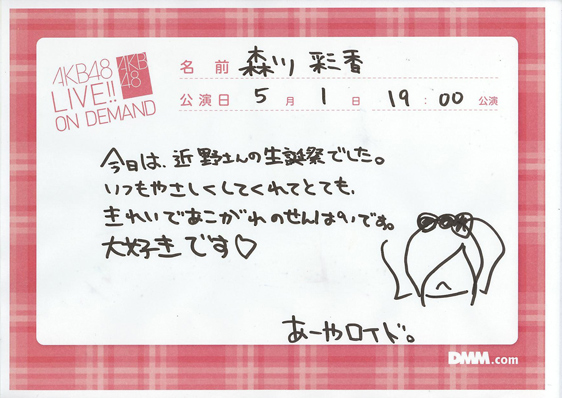 AKB48
LIVE!!
ON DEMAND
AKB
48
名前 森川 彩香
公演日 5月1日 19:00公演
今日は、近野さんの生誕祭でした。
いつもやさしくしてくれてとても、
きれいであこがれのせんぱいです。
大好きです♡
あーやロイド。
DMM.com